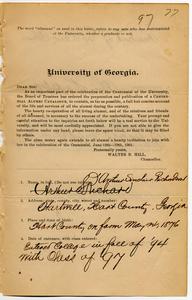 97 77
The word "alumnus" as used in this letter, refers to any man who has matriculated
at the University, whether a graduate or not.
University of Georgia.
DEAR SIR:
As an important part of the celebration of the Centennial of the University,
the Board of Trustees has ordered the preparation and publication of a CENTEN-
NIAL ALUMNI CATALOGUE, to contain, so far as possible, a full but concise account
of the life and services of all the alumni during the century.
The hearty co-operation of all living alumni, and of the relatives and friends
of all deceased, is necessary to the success of the undertaking. Your prompt and
careful attention to the inquiries set forth below will be a real service to the Uni-
versity, and will be cordially appreciated. In case the blank space left after any
question is not sufficient, please leave the space blank, so that it may be filled by
the others.
The occasion is also seized to extend to all alumni a hearty invitation to join
with us in the celebration of the Centennial, June 12th-19th, 1901.
Fraternally yours,
WALTER B. HILL,
Chancellor.
1. Name, in full,
Arthur Richard
2. Address: postoffice, county, state
Hartwell, Hart County, Georgia
3. Place and time of birth:
Hart County, on farm May 24, 1876
4. Date of entrance, with class entered:
Entered College in fall of '94
with Class of '97